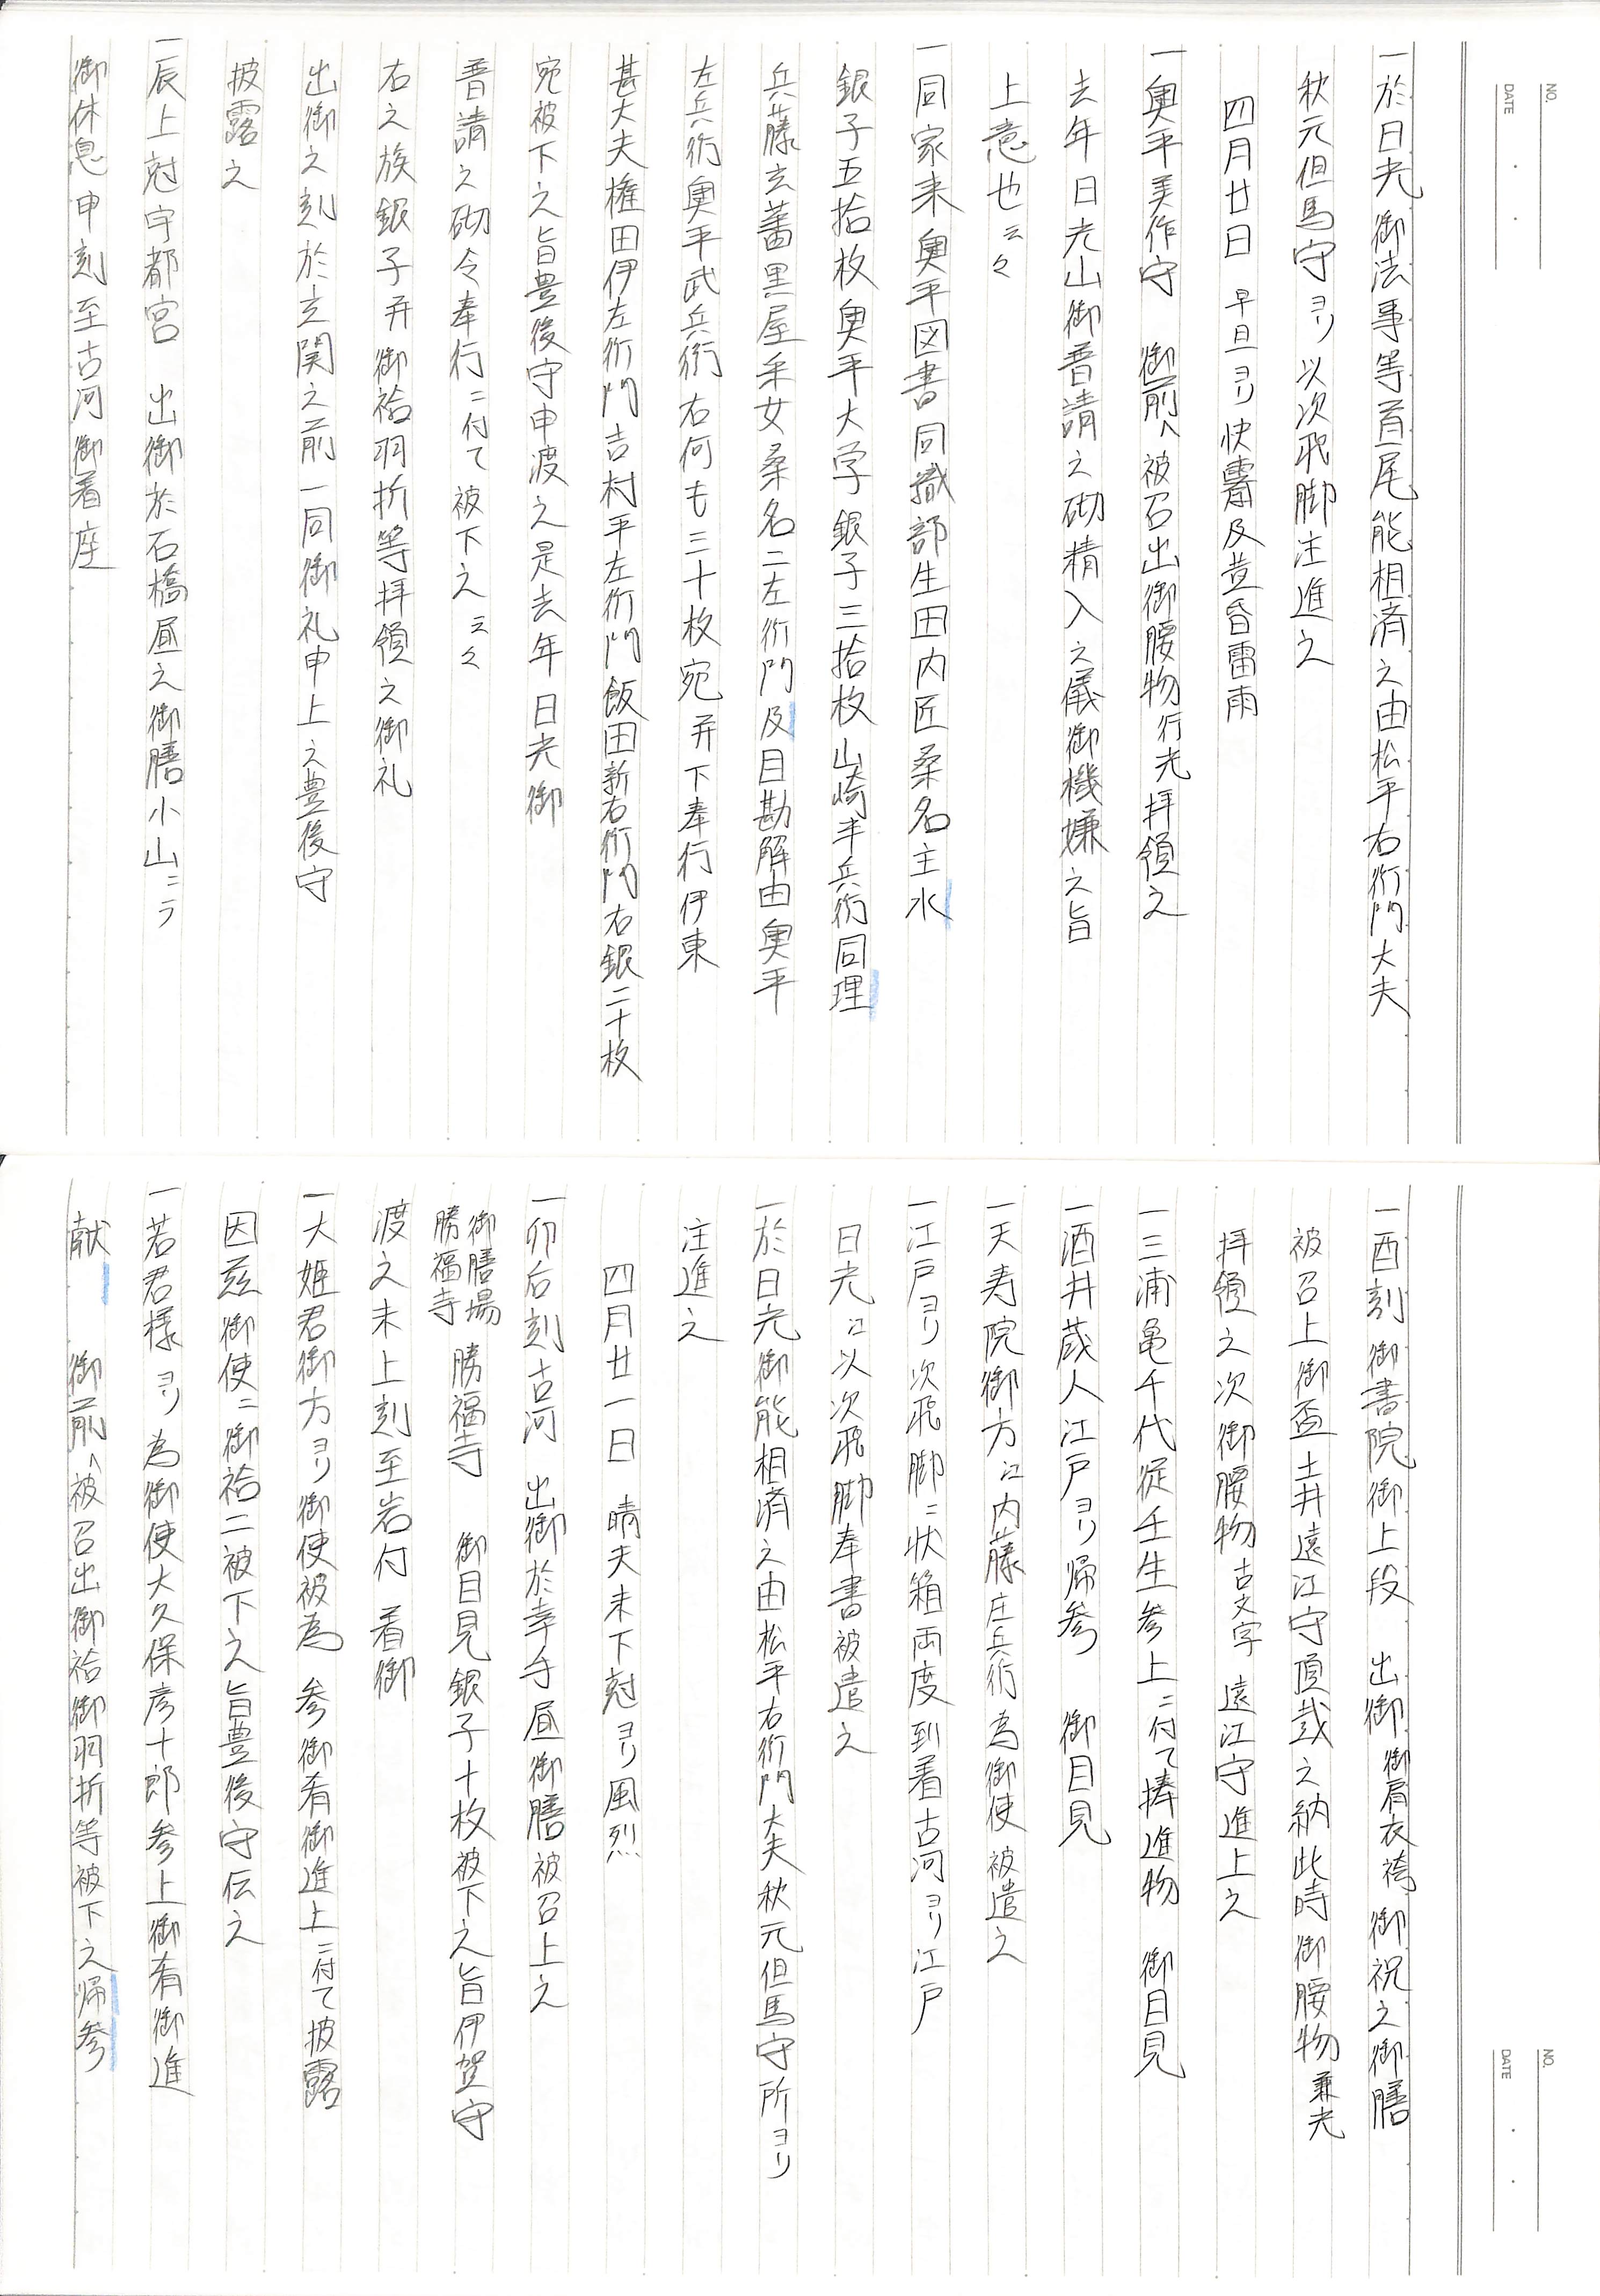 NO.
DATE
一於日光御法事等首尾能相済之由松平右衛門大夫
秋元但馬守ヨリ以次飛脚注進之
四月廿日 早旦ヨリ快霽及黄昏雷雨
一奥平美作守 御前へ被召出御腰物行光拝領之
去年日光山御普請之砌精入之儀御機嫌之旨
上意也云々
一同家来奥平図書同織部生田内匠桑名主水
銀子五拾枚奥平大学銀子三拾枚山崎半兵衛同理
兵藤玄蕃黒屋采女桑名二左衛門及目勘解由奥平
左兵衛奥平武兵衛右何も三十枚宛并下奉行伊東
甚大夫権田伊左衛門吉村平左衛門飯田新右衛門右銀二十枚
宛被下之旨豊後守申渡之是去年日光御
普請之砌令奉行ニ付て被下之云々
右之族銀子并御袷羽折等拝領之御礼
出御之刻於玄関之前一同御礼申上之豊後守
披露之
一辰上尅宇都宮 出御於石橋昼之御膳小山ニテ
御休息申刻至古河御着座
NO.
DATE
一酉刻御書院御上段 出御御肩衣袴御祝之御膳
被召上御盃土井遠江守頂戴之納此時御腰物兼光
拝領之次御腰物古文字 遠江守進上之
一三浦亀千代従壬生参上ニ付て捧進物 御目見
一酒井蔵人江戸ヨリ帰参 御目見
一天寿院御方江内藤庄兵衛為御使被遣之
一江戸ヨリ次飛脚ニ状箱両度到着古河ヨリ江戸
日光江以次飛脚奉書被遣之
一於日光御能相済之由松平右衛門大夫秋元但馬守所ヨリ
注進之
四月廿一日 晴天未下尅ヨリ風烈
一卯后刻古河 出御於幸手昼御膳被召上之
御膳場勝福寺 勝福寺 御目見銀子十枚被下之旨伊賀守
渡之未上刻至岩付 着御
一大姫君御方ヨリ御使被為 参御肴御進上ニ付て披露
因茲御使ニ御袷二被下之旨豊後守伝之
一若君様ヨリ為御使大久保彦十郎参上御肴御進
献 御前へ被召出御袷御羽折等被下之帰参